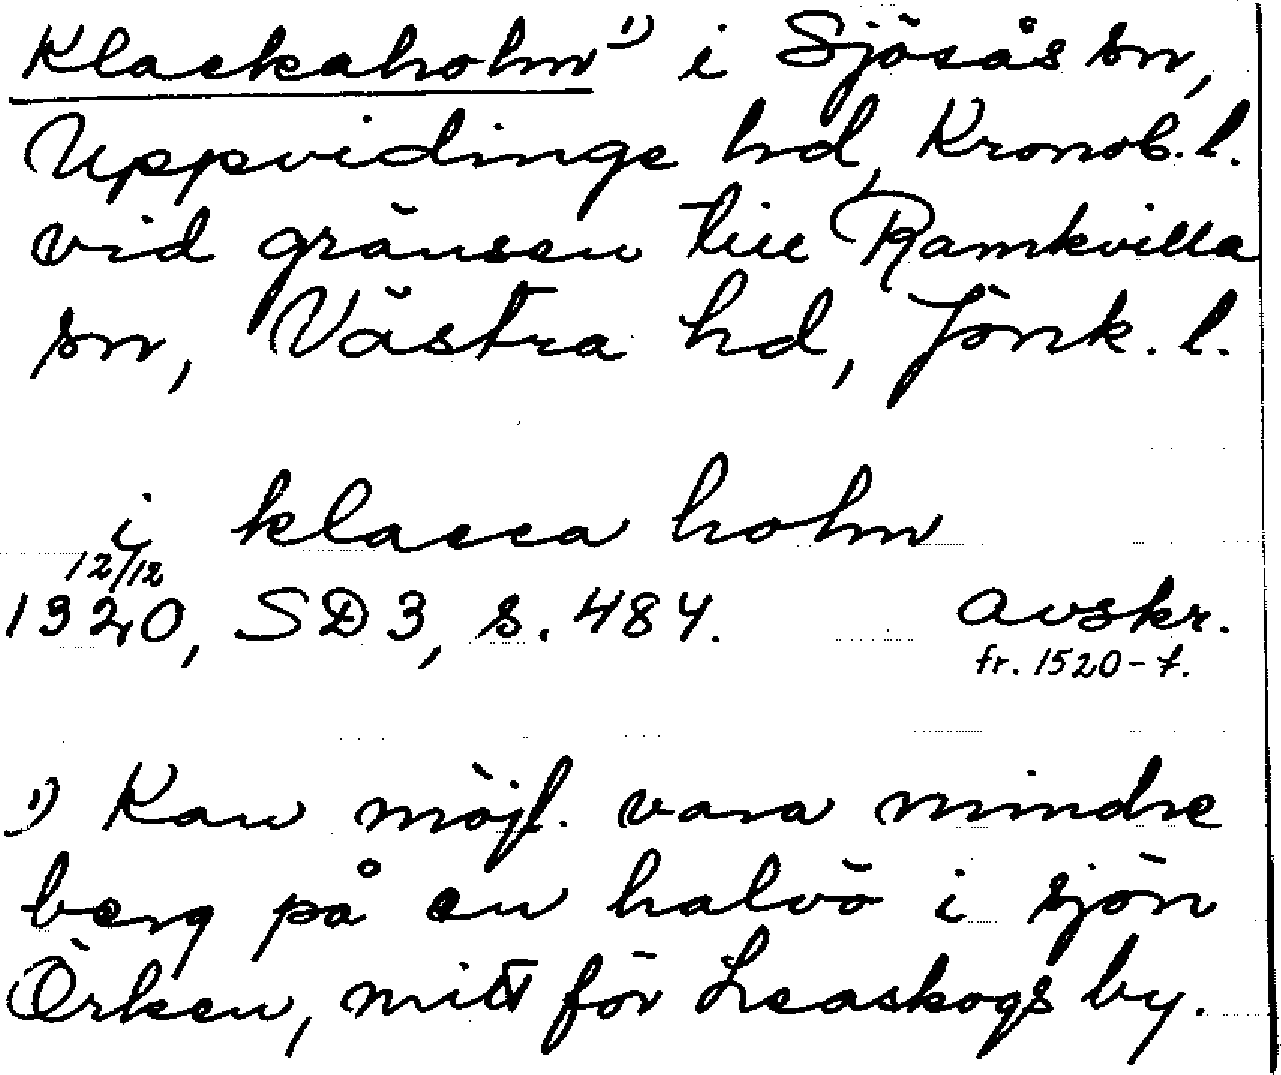 Klackaholm 1) i Sjösås sn,
Uppvidinge hd, Kronob. l.
vid gränsen till Ramkvilla
sn, Västra hd, Jönk. l.
i klacca holm
12/12
1320, SD 3, s. 484. avskr.
fr. 1520-t.
1) Kan möjl. vara mindre
berg på en halvö i sjön
Örken, mitt för Leaskogs by.